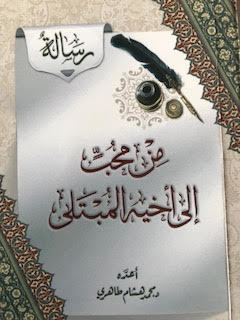 رسالة
من محب
إلى أخيه المبتلى
أعده
د. محمد هشام طاهري